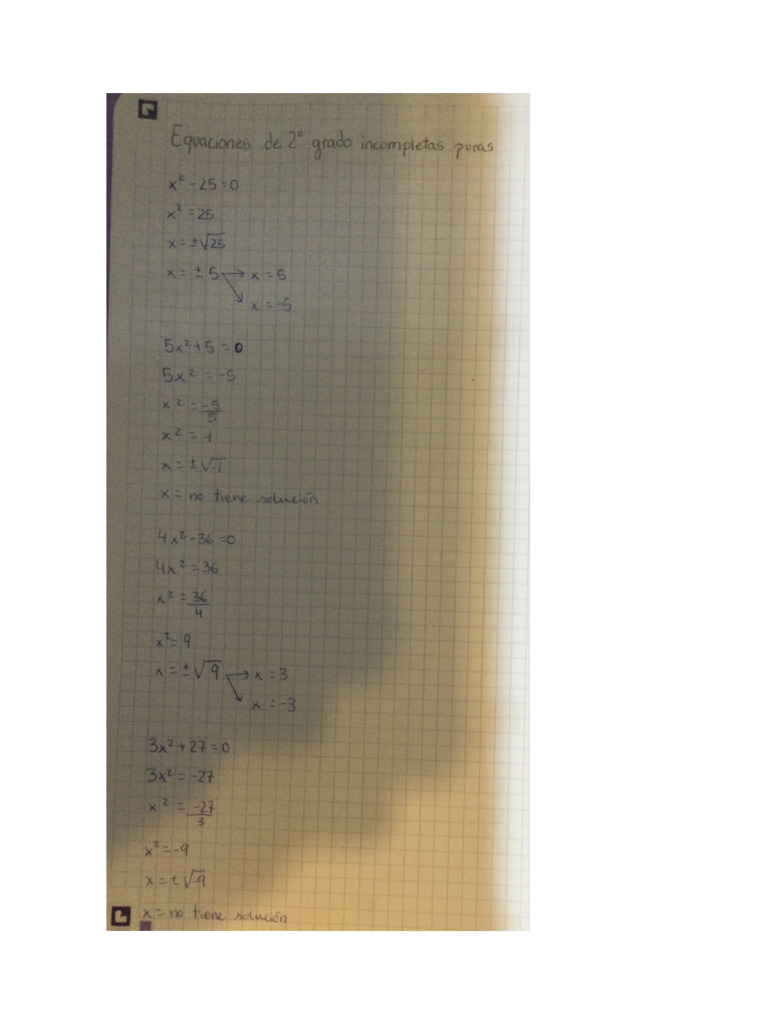 Equaciones de 2º grado incompletas puras
x² - 25 = 0
x² = 25
x = ±√25
x = ± 5 → x = 5
↘ x = -5
5x² + 5 = 0
5x² = -5
x² = -5/5
x² = -1
x = ±√-1
x = no tiene solución
4x² - 36 = 0
4x² = 36
x² = 36/4
x² = 9
x = ±√9 → x = 3
↘ x = -3
3x² + 27 = 0
3x² = -27
x² = -27/3
x² = -9
x = ±√-9
x = no tiene solución